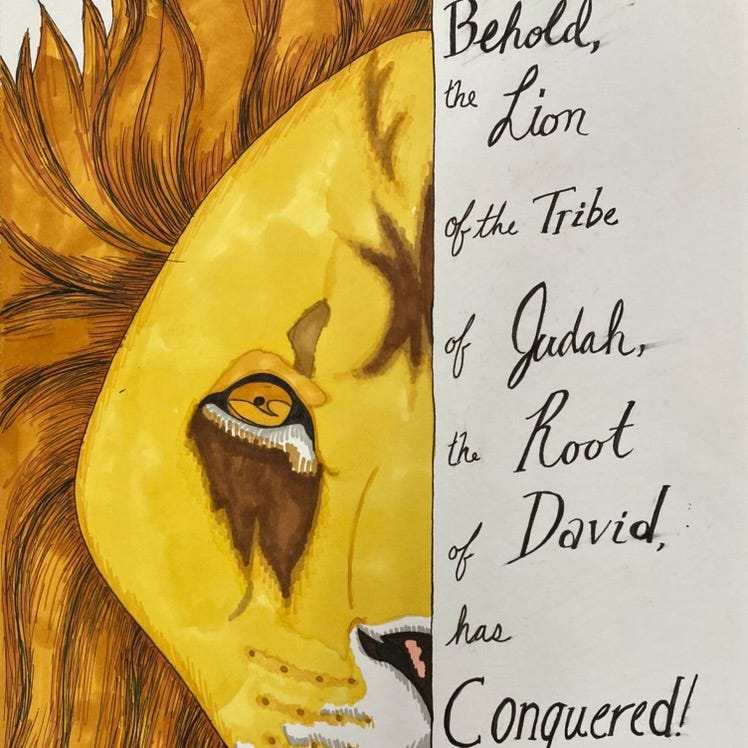 Behold,
the Lion
of the Tribe
of Judah,
the Root
of David,
has
Conquered!